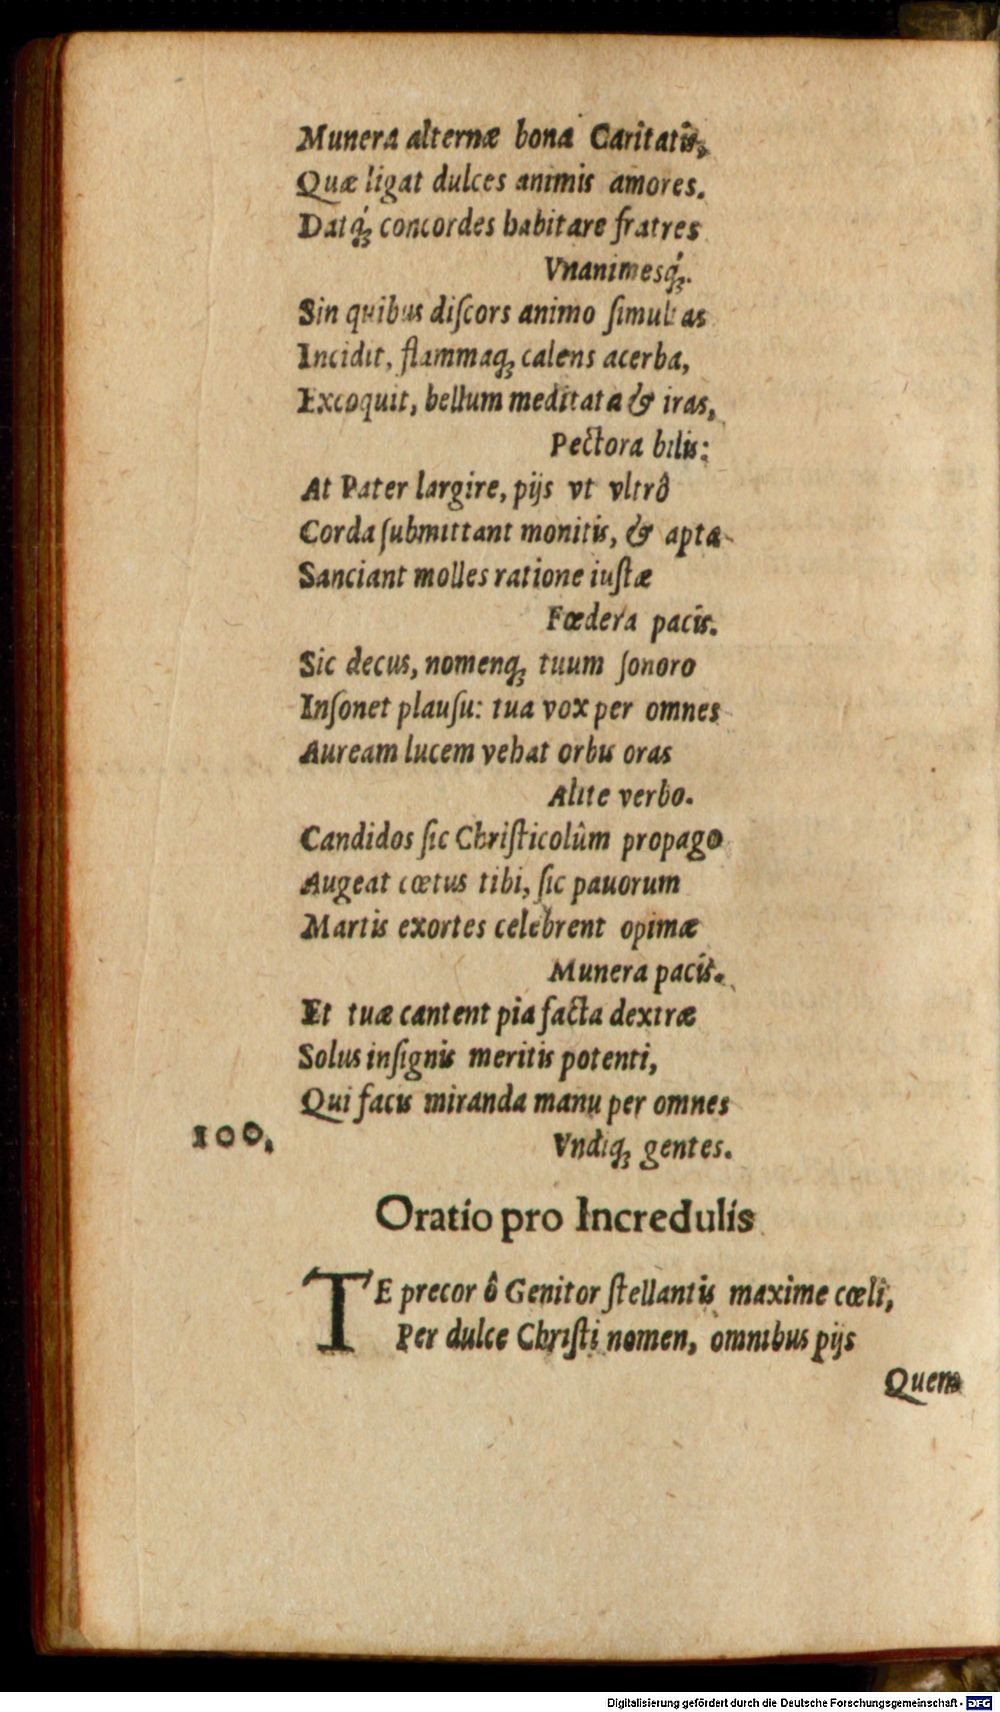 Munera alternæ bona Caritatis,
Quæ ligat dulces animis amores.
Datq́ꝫ concordes habitare fratres
Vnanimesq́ꝫ.
Sin quibus diſcors animo ſimultas
Incidit, flammaqꝫ calens acerba,
Excoquit, bellum meditata & iras,
Pectora bilis:
At Pater largire, pijs vt vltrò
Corda ſubmittant monitis, & apta
Sanciant molles ratione iuſtæ
Fœdera pacis.
Sic decus, nomenqꝫ tuum ſonoro
Inſonet plauſu: tua vox per omnes
Auream lucem vehat orbis oras
Alite verbo.
Candidos ſic Chriſticolûm propago
Augeat cœtus tibi, ſic pauorum
Martis exortes celebrent opimæ
Munera pacis.
Et tuæ cantent pia facta dextræ
Solus inſignis meritis potenti,
Qui facis miranda manu per omnes
100. Vndiqꝫ gentes.
Oratio pro Incredulis
TE precor ô Genitor ſtellantis maxime cœli,
Per dulce Chriſti nomen, omnibus pijs
Quem
Digitalisierung gefördert durch die Deutsche Forschungsgemeinschaft - DFG